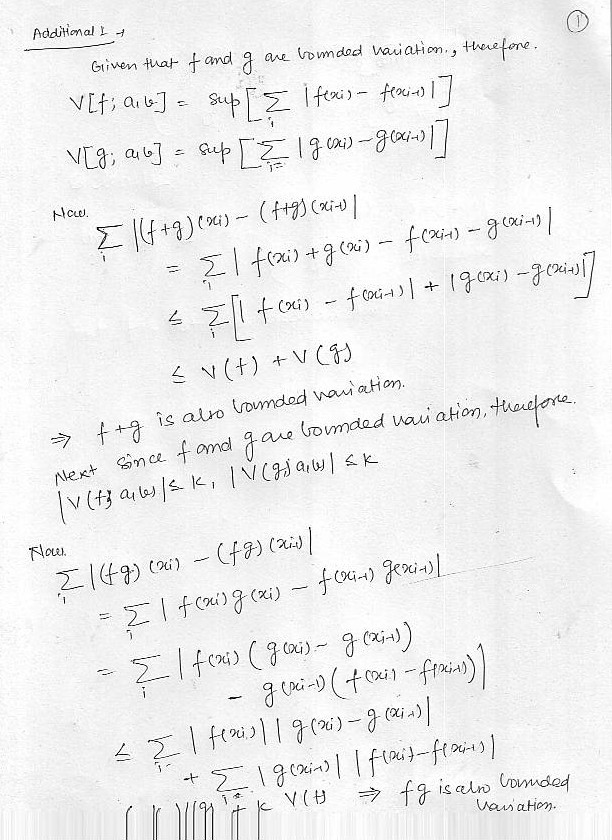 ①
Additional 1 →
Given that f and g are bounded variation., therefore.
V[f; a,b] = sup [ Σ_i | f(xi) - f(xi-1) | ]
V[g; a,b] = sup [ Σ_i= | g(xi) - g(xi-1) | ]
Now.
Σ_i | (f+g)(xi) - (f+g)(xi-1) |
= Σ_i | f(xi) + g(xi) - f(xi-1) - g(xi-1) |
≤ Σ_i [ | f(xi) - f(xi-1) | + | g(xi) - g(xi-1) | ]
≤ V(f) + V(g)
⇒ f+g is also bounded variation.
Next since f and g are bounded variation, therefore.
| V(f; a,b) | ≤ k, | V(g; a,b) | ≤ k
Now.
Σ_i | (fg)(xi) - (fg)(xi-1) |
= Σ_i | f(xi) g(xi) - f(xi-1) g(xi-1) |
= Σ_i | f(xi) ( g(xi) - g(xi-1) )
- g(xi-1) ( f(xi) - f(xi-1) ) |
≤ Σ_i | f(xi) | | g(xi) - g(xi-1) |
+ Σ_i= | g(xi-1) | | f(xi) - f(xi-1) |
+ k V(f) ⇒ fg is also bounded
variation.